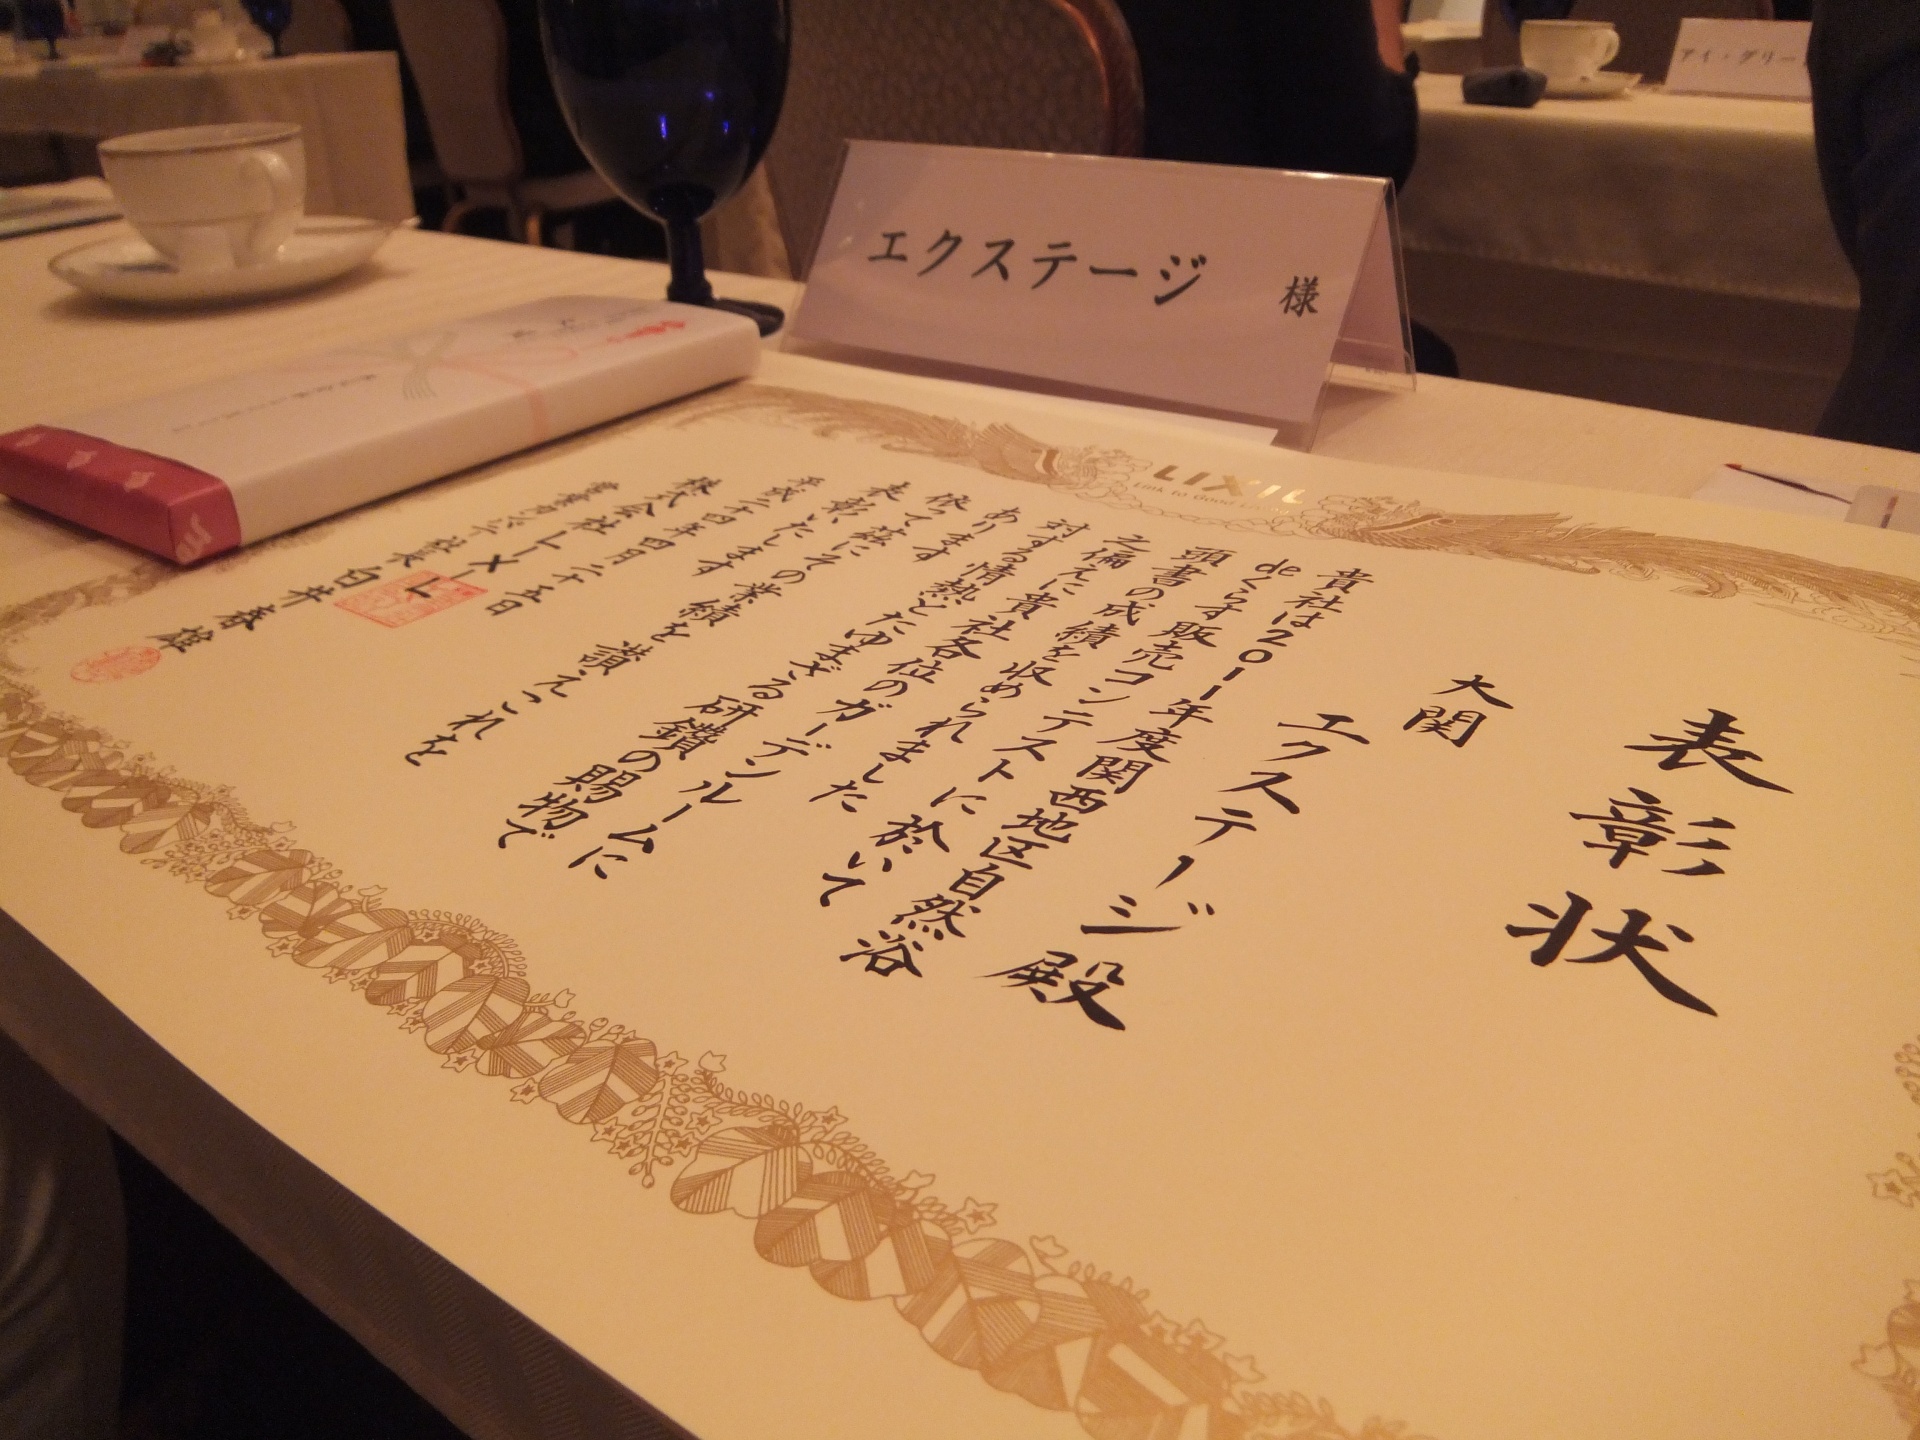 エクステージ 様
アイ・グリー
LIXIL
Link to Good Living
表彰状
大関
エクステージ 殿
貴社は2011年度関西地区自然浴
deくらす販売コンテストに於いて
頭書の成績を収められました
之偏えに貴社各位のガーデンルームに
対する情熱とたゆまざる研鑽の賜物で
あります
依って茲にその業績を讃えこれを
表彰いたします
平成二十四年四月二十五日
株式会社LIXIL
営業カンパニー社長 白井春雄